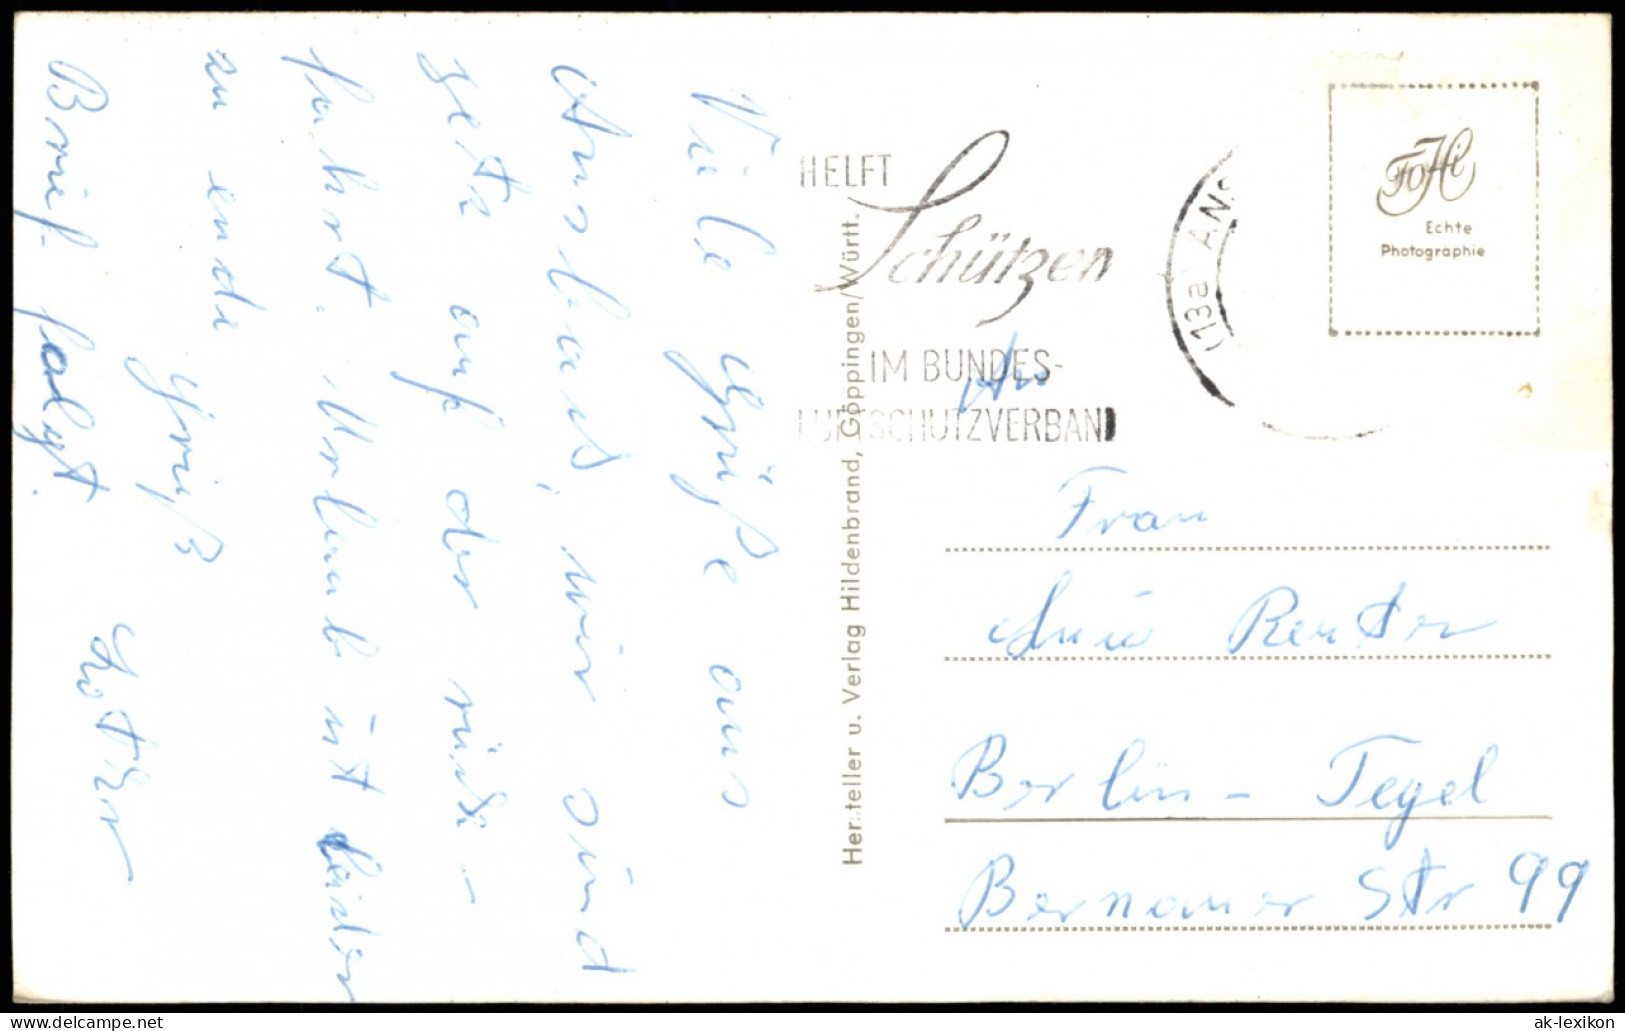 Viele Grüße aus
Ansbach, wir sind
jetzt auf der rück-
fahrt. Urlaub ist leider
zu ende
Gruß
Lothar
Brief folgt.
HELFT
Schützen
IM BUNDES-
LUFTSCHUTZVERBAND
(13a) ANS
FoHi
Echte
Photographie
Hersteller u. Verlag Hildenbrand, Göppingen/Württ.
An
Frau
Reuter
Berlin - Tegel
Bernauer Str 99
www.ansichtskarten-lexikon.de
ak-lexikon